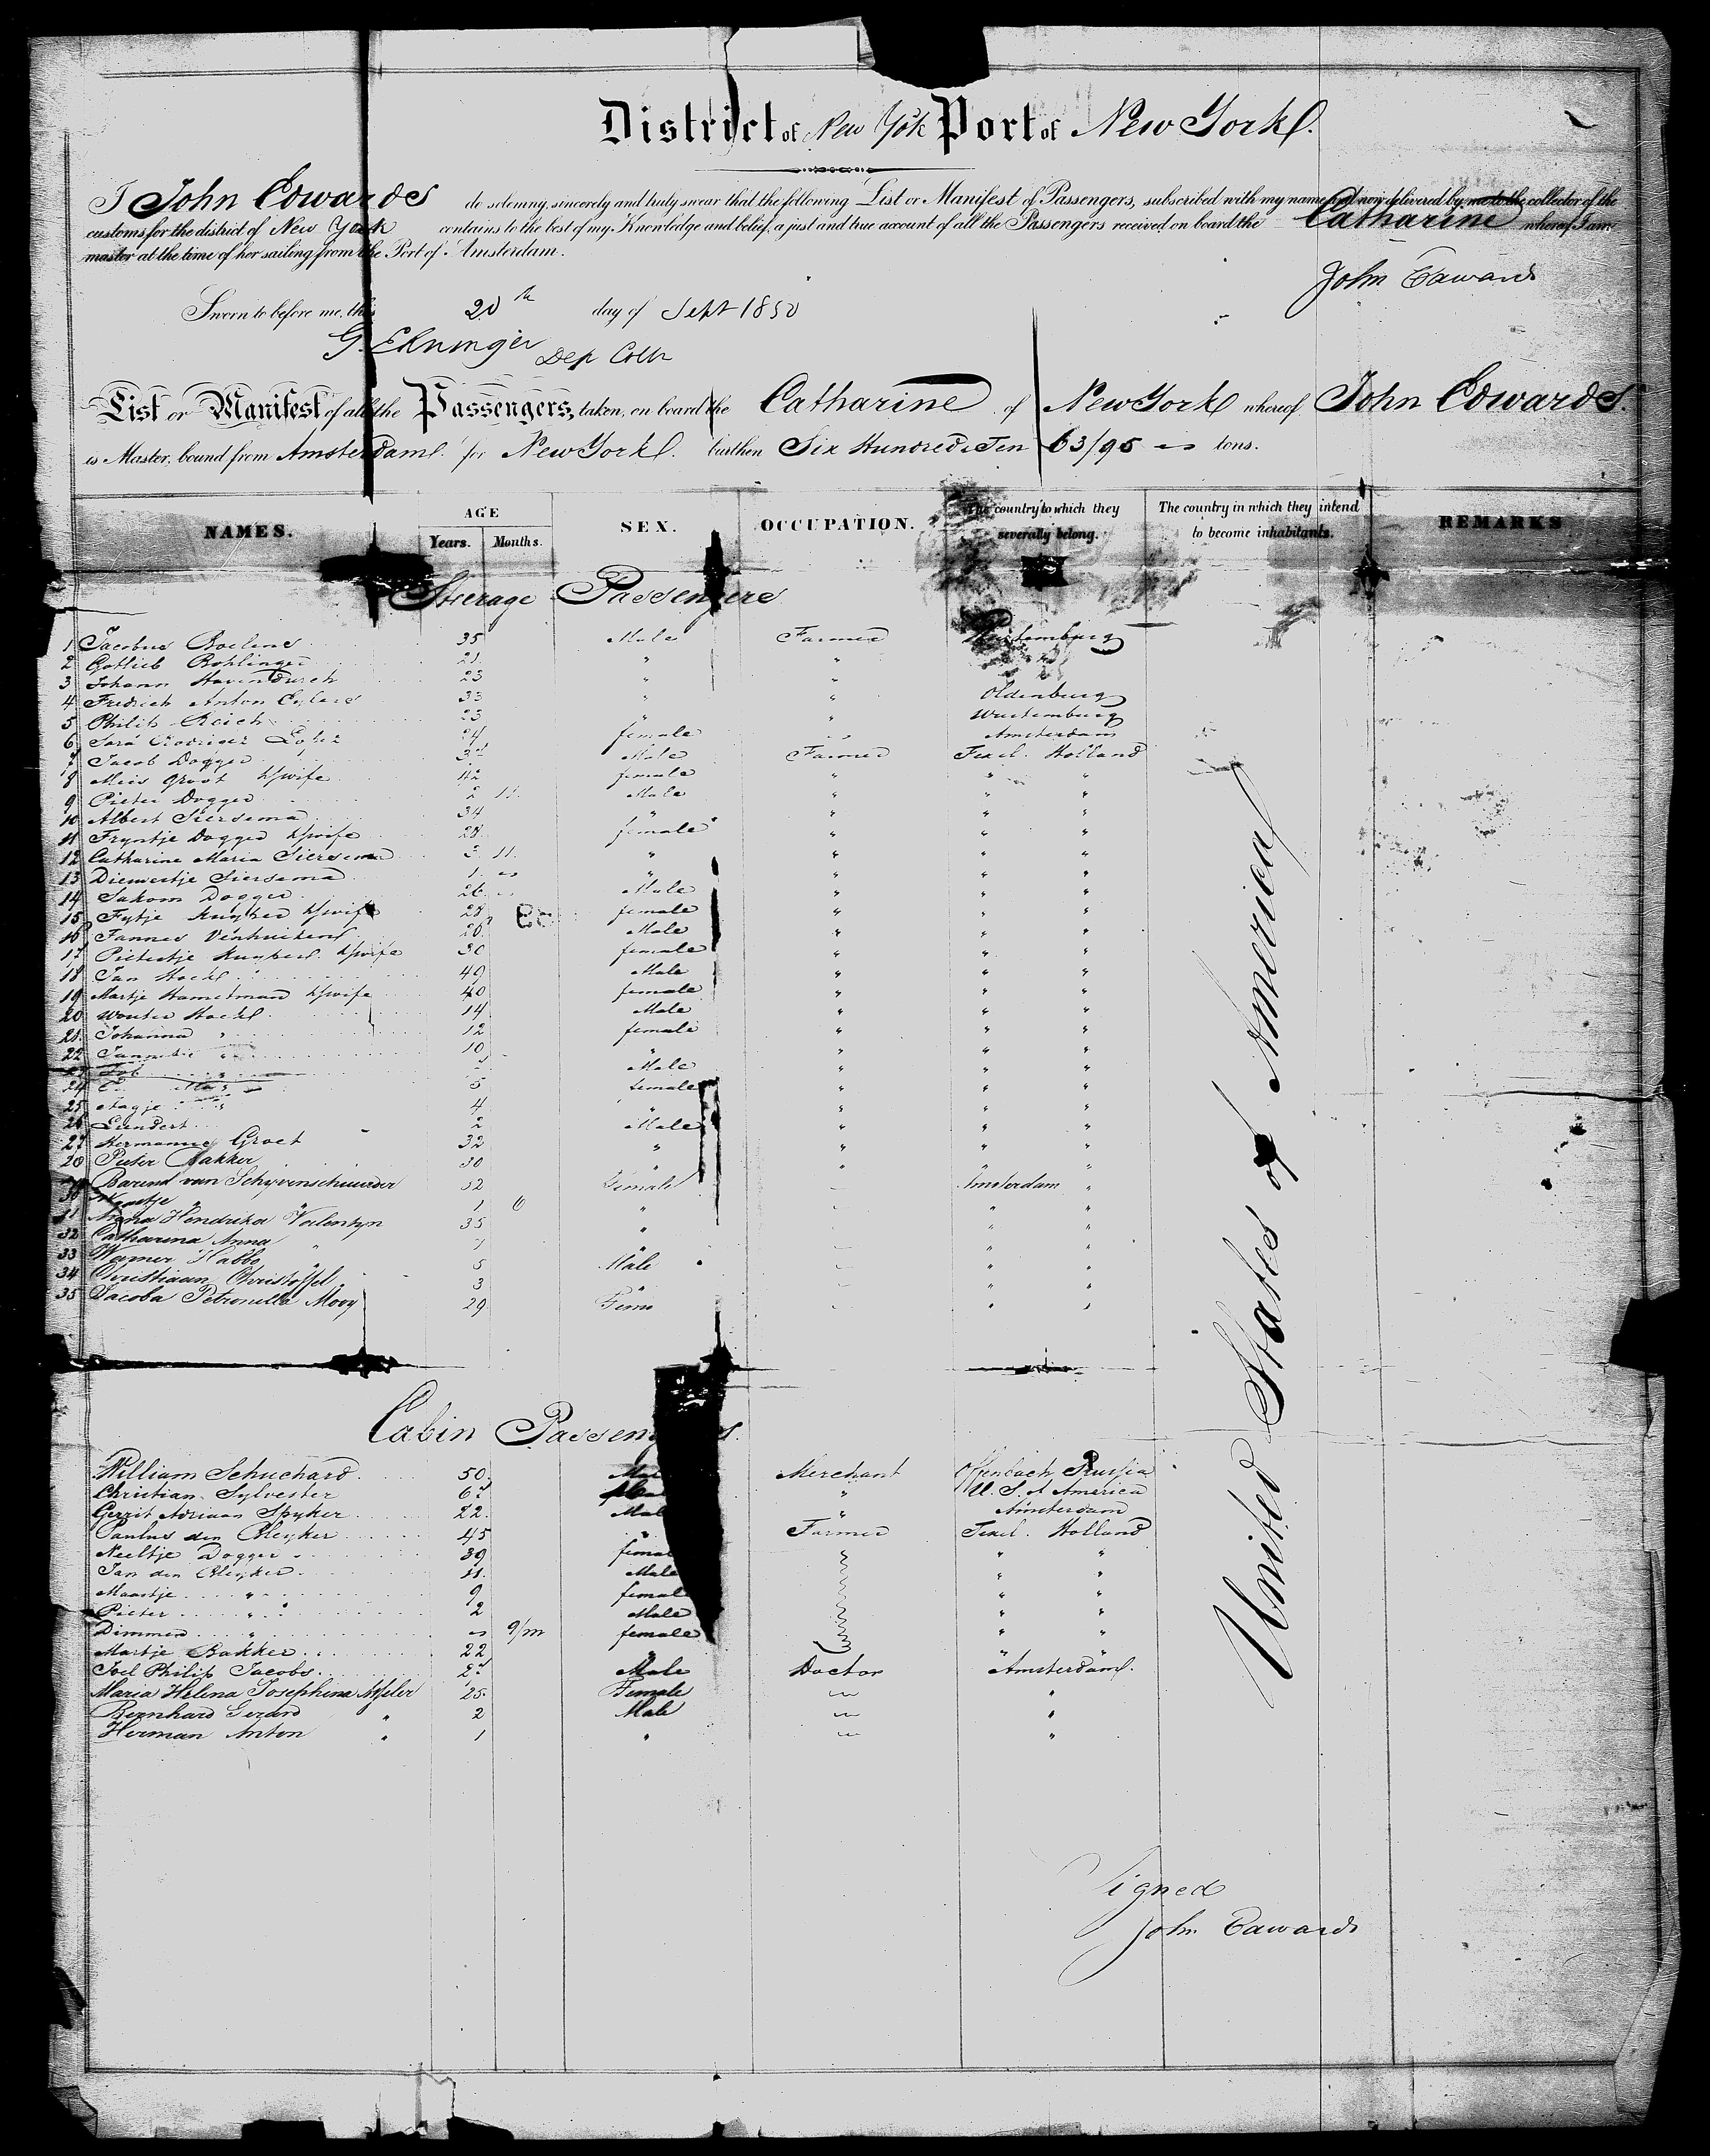 District of New York Port of New York.
I John Edwards do solemny, sincerely and truly swear that the following List or Manifest of Passengers, subscribed with my name and now delivered by me to the collector of the
customs for the district of New York contains to the best of my Knowledge and belief, a just and true account of all the Passengers received on board the Catharine whereof I am
master at the time of her sailing from the Port of Amsterdam.
John Edwards
Sworn to before me, this 20th day of Sept 1850
Dep Collr
List or Manifest of all the Passengers, taken, on board the Catharine of New York whereof John Edwards.
is Master, bound from Amsterdam. for New York. burthen Six Hundred & Ten 63/95 tons.
NAMES. AGE Years. Months. SEX. OCCUPATION. The country to which they severally belong. The country in which they intend to become inhabitants. REMARKS
Steerage Passengers
1 Jacobus Roelens 35 Male Farmer
2 Gottlieb 21 " "
3 Johann 23 " "
4 Fredrich Anton Eylers 33 " " Oldenburg
5 Philip Reich 23 " " Wurtemburg
6 Sara Rodriges Lopez 24 female Amsterdam
7 Jacob Dogger Male Farmer Texel. Holland
8 Groot h/wife 42 female " " "
9 Pieter Dogger 2 11. Male " " "
10 Albert Siersema 34 " " " "
11 Tryntje Dogger h/wife 28. female " " "
12 Catharina Maria Siersema 3 11. " " " "
13 Diewertje Siersema 1 " " " "
14 Jakom Dogger 26 Male " " "
15 Fytje Kuyker h/wife 28 female " " "
16 Jannes Venhuizen 26 Male " " "
17 Pietertje Kuyker h/wife 30 female " " "
18 Jan Hoekl 49 Male " " "
19 Martje Hamelman h/wife 40 female " " "
20 Wouter Hoekl 14 Male " " "
21. Johanna " 12 female " " "
22 Jannetje " 10 " " " "
23 Job " Male " " "
24 5 female " " "
25 Aagje " 4 " " " "
26 Leendert " 2 Male " " "
27 Hermanus Groet 32 " " " "
28 Pieter Bakker 30 " " " "
Barend van Schyvenschuurder 32 Amsterdam "
30 Naatje " 1 6 " " "
31 Anna Hendrika Valentyn 35 " " "
32 Catharina Anna " 7 " " "
33 Warner Habbo 5 Male " "
34 Christiaan Christoffel 3 " " "
35 Jacoba Petronella Mooy 29 Fema " "
United States of America
Cabin Passengers.
William Schuchard 50. Male Merchant Offenbach Prussia
Christian Sylvester " U. S. A America
Gerrit Adriaan Spyker 22. Male " Amsterdam
Paulus den Bleyker 45 " Farmer Texel. Holland
Neeltje Dogger 39 female " "
Jan den Bleyker 11. Male " "
Maartje " 9 female " "
Pieter " 2 Male " "
Dimmen " 9/m female " "
Martje Bakker 22 " " "
Joel Philip Jacobs Male Doctor Amsterdam.
Maria Helena Josephina 25. Female "
Bernhard Gerard " 2 Male "
Herman Anton " 1 " "
Signed
John Edwards